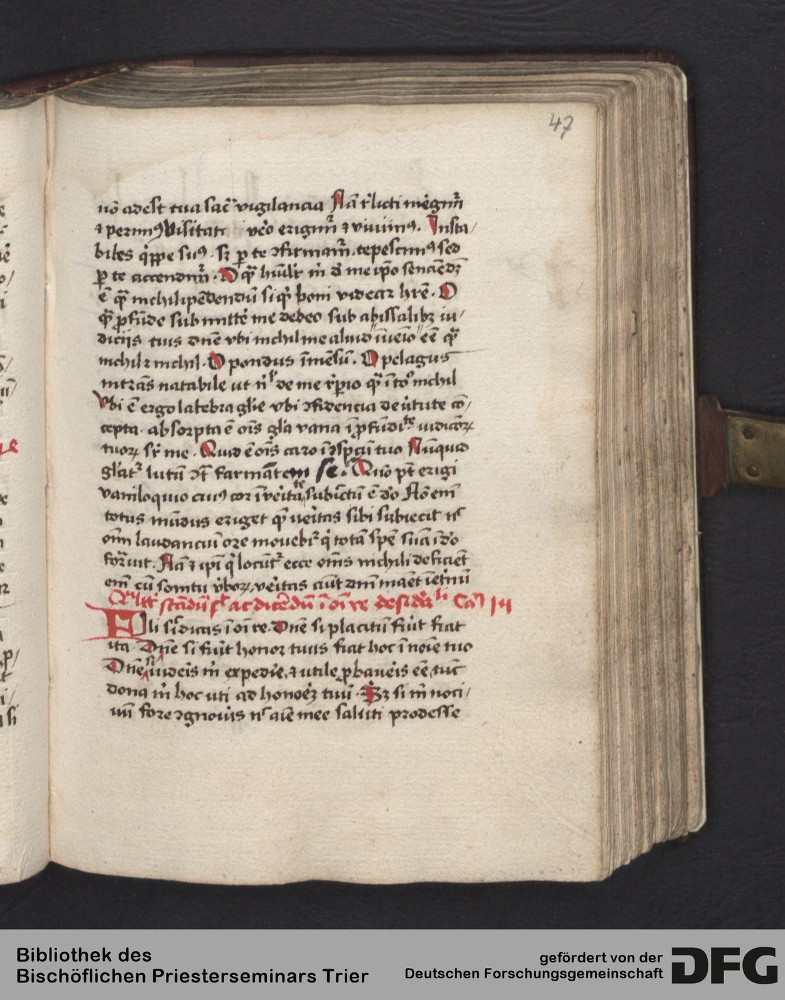 47
nō adest tua sac̄ vigilancia Nā rl̄icti mergim̄
⁊ perimꝰ visitati vēo erigim̄ ⁊ viuimꝰ. Insta/
biles qͥppe sumꝰ. sꝫ ꝑ te ꝯfirmam̄. tepescimꝰ sed
ꝑ te accendim̄. O qͣ hūilr̄ m̄ d̄ me ip̄o senciēdꝫ
ē qͣ nichilipēdendū si qͥd boni videar hr̄e. O
qͣ ꝓfūde submitte͛ me debeo sub abissalibꝫ iu/
diciis tuis dn̄e vbi nichil me aliud īuēio eē qͣ
nichil ⁊ nichil. O pondus īmēsū. O pelagus
intrās natabile ut nͥl de me rꝑio qͣ ī toͦ nichil
Vbi ē ergo latebra gl̄ie vbi ꝯfidencia de v̄tute cō
cepta. absorpta ē oīs gl̄a vana ī ꝓfūdite iudicioꝝ
tuoꝝ sr̄ me. Quid ē oīs caro ī ꝯspc̄u tuo Nūquid
gl̄iatͬ lutū ꝯͭ farmāteꝫ se. Quō pt̄ erigi
vaniloquio cuiꝰ cor ī veritāte subiectū ē dō Nō em̄
totus mūdus eriget qͣ veritas sibi subiecit nͨ
oīm laudanciū ore mouebitͬ qͥ totā spē suā ī dō
formauit. Nā ⁊ ip̄i qͥ locūtͬ ecce om̄s nichili deficiēt
em̄ cū sonitu v̄boꝝ, veritas aūt dn̄i manēt ī et̄nū
Qͣlitͬ stādū sͭ ac dicēdū ī oī re desiderabili Cam̄ III
Fili sic dicas ī oī re. Dn̄e si placitū fu͛it fiat
ita. Dn̄e si fu͛it honor tuus fiat hoc ī noīe tuo
Dn̄e si videis m̄ expedie͛, ⁊ utile ꝓbaueis eē tūc
dona m̄ hoc uti ad honoē tuū. Sꝫ si m̄ noci/
uū fore ꝯgnouis nͨ aīe mee saluti prodesse
Bibliothek des
Bischöflichen Priesterseminars Trier
gefördert von der
Deutschen Forschungsgemeinschaft
DFG